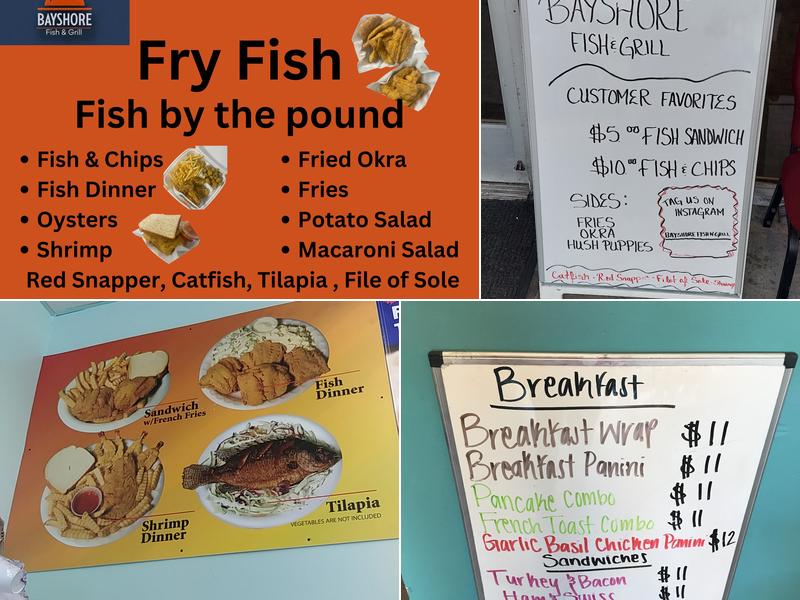 BAYSHORE
Fish & Grill
Fry Fish
Fish by the pound
• Fish & Chips
• Fish Dinner
• Oysters
• Shrimp
• Fried Okra
• Fries
• Potato Salad
• Macaroni Salad
Red Snapper, Catfish, Tilapia , File of Sole
BAYSHORE
FISH & GRILL
CUSTOMER FAVORITES
$5.00 FISH SANDWICH
$10.00 FISH & CHIPS
SIDES:
FRIES
OKRA
HUSH PUPPIES
TAG US ON
INSTAGRAM
BAYSHOREFISHNGRILL
Catfish - Red Snapp - Filet of Sole - Shrimp
Sandwich
w/French Fries
Fish
Dinner
Shrimp
Dinner
Tilapia
VEGETABLES ARE NOT INCLUDED
Breakfast
Breakfast Wrap $11
Breakfast Panini $11
Pancake Combo $11
French Toast Combo $11
Garlic Basil Chicken Panini $12
Sandwiches
Turkey & Bacon $11
Ham & Swiss $11